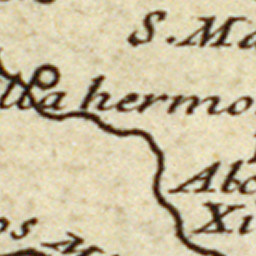 S. Ma
lla hermo
Abc
Xi
os M